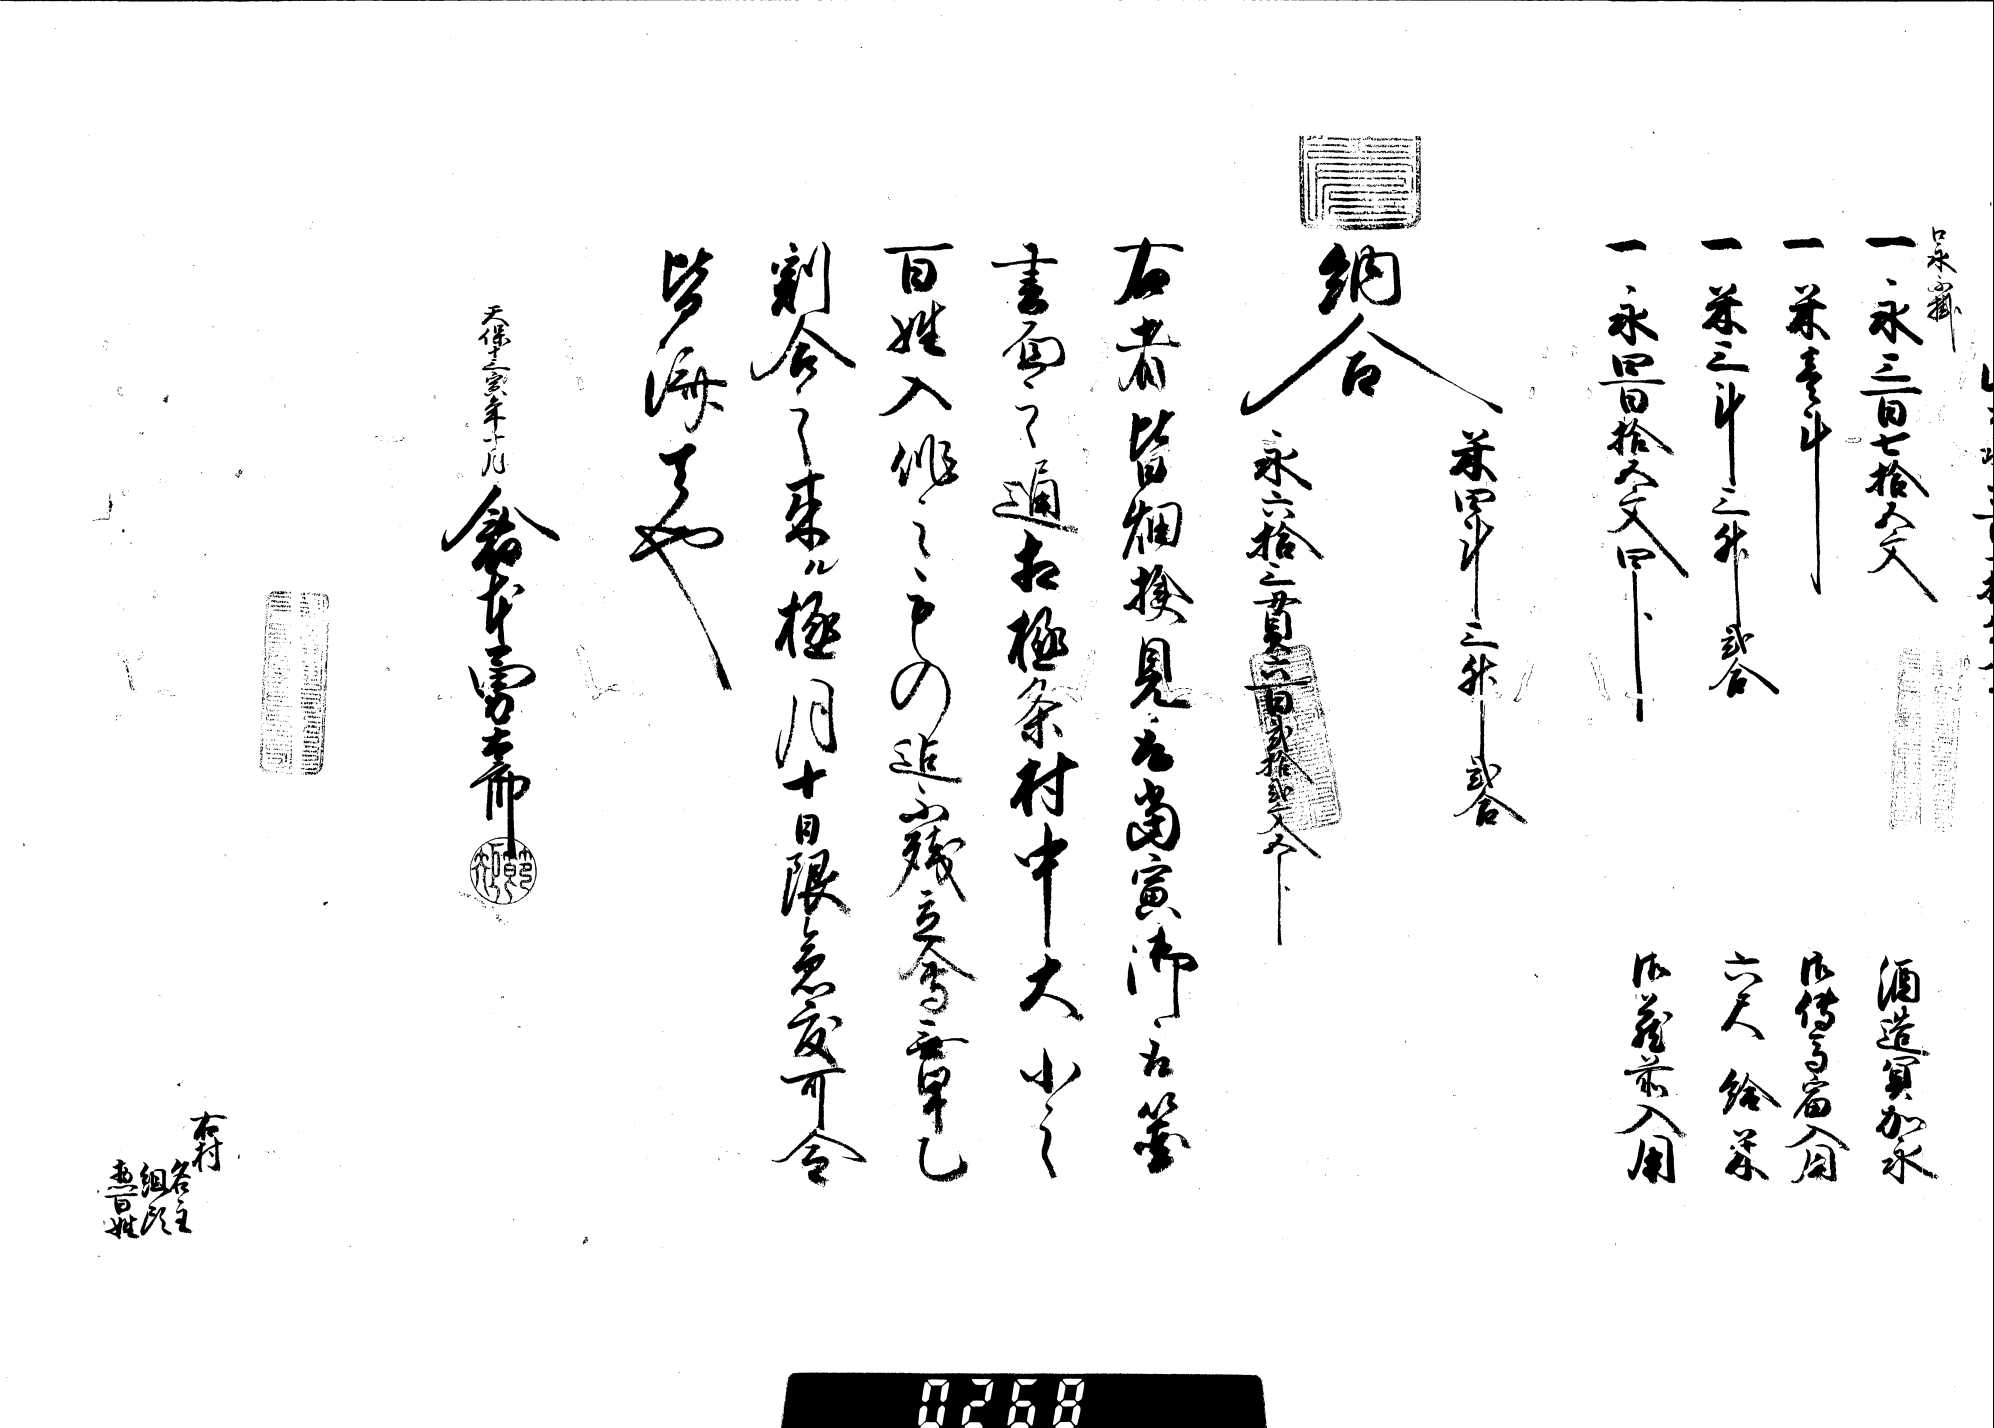 口永不掛
一 永三百七拾五文 酒造冥加永
一 米壱斗 御伝馬宿入用
一 米三斗三升弐合 六尺給米
一 永四百拾五文四分 御蔵前入用
納合
米四斗三升弐合
永六拾三貫六百弐拾弐文五分
右者皆畑検見取当寅御取箇
書面之通相極条村中大小之
百姓入作之もの迄不残立会無甲乙
割合之来ル極月十日限急度可令
皆済もの也
天保十三寅年十月
右村
名主
組頭
惣百姓
0268